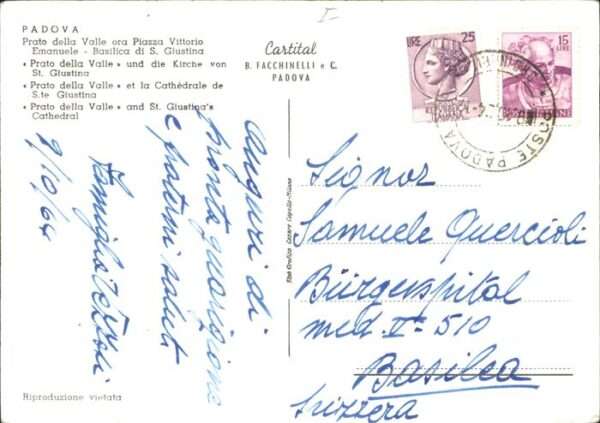 PADOVA
Prato della Valle ora Piazza Vittorio
Emanuele - Basilica di S. Giustina
• Prato della Valle • und die Kirche von
St. Giustina
• Prato della Valle • et la Cathédrale de
S.te Giustina
• Prato della Valle • and St. Giustina's
Cathedral
Cartital
B. FACCHINELLI e C.
PADOVA
LIRE 25
15
LIRE
POSTE PADOVA
Auguri di
pronta guarigione
e fraterni saluti
Famiglia
9/10/64
Signor
Samuele Quercioli
Bürgerspital
med. IIª 510
Basilea
Svizzera
Riproduzione vietata